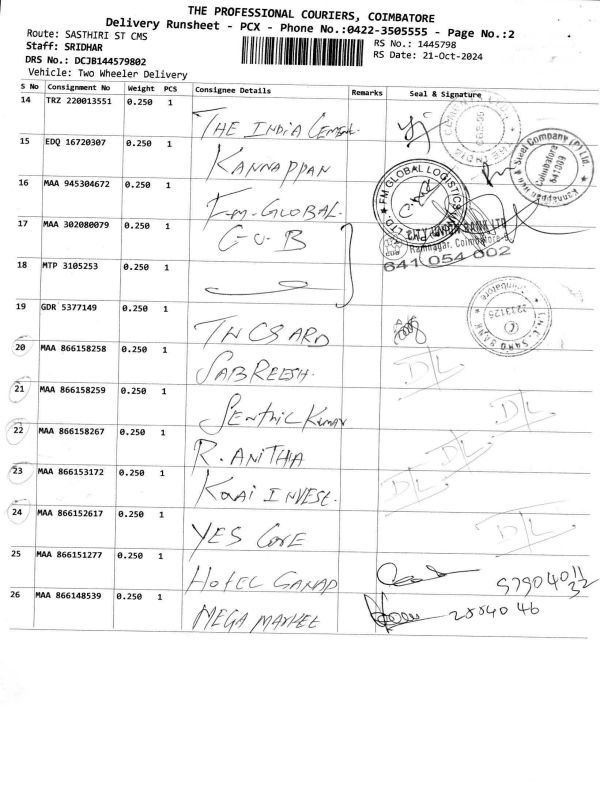 THE PROFESSIONAL COURIERS, COIMBATORE
Delivery Runsheet - PCX - Phone No.:0422-3505555 - Page No.:2
Route: SASTHIRI ST CMS
RS No.: 1445798
Staff: SRIDHAR
RS Date: 21-Oct-2024
DRS No.: DCJB144579802
Vehicle: Two Wheeler Delivery
S No Consignment No Weight PCS Consignee Details Remarks Seal & Signature
14 TRZ 220013551 0.250 1 THE INDIA
15 EDQ 16720307 0.250 1 KANNAPPAN
Steel Company (P) Ltd. Coimbatore 641009
16 MAA 945304672 0.250 1 F.M. GLOBAL.
FM GLOBAL LOGISTICS
17 MAA 302080079 0.250 1 C-U-B
CITY UNION BANK LTD
Ramnagar, Coimbatore-9
641 054 002
18 MTP 3105253 0.250 1
19 GDR 5377149 0.250 1 TNCSARD
20 MAA 866158258 0.250 1 SABREESH. DL
21 MAA 866158259 0.250 1 Senthil Kumar DL
22 MAA 866158267 0.250 1 R. ANITHA DL
23 MAA 866153172 0.250 1 Kovai INVEST. DL
24 MAA 866152617 0.250 1 YES DL
25 MAA 866151277 0.250 1 HOTEL GANAP
26 MAA 866148539 0.250 1 MEGA MARKET 2884046